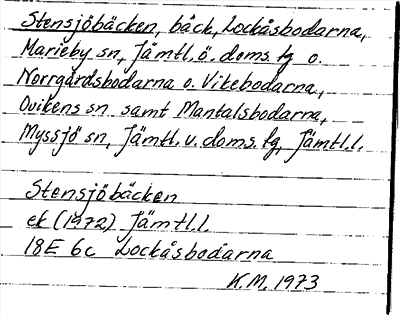 Stensjöbäcken, bäck, Lockåsbodarna,
Marieby sn, Jämtl. ö. doms. lg o.
Norrgårdsbodarna o. Vikebodarna,
Ovikens sn samt Mantalsbodarna,
Myssjö sn, Jämtl. v. doms. lg, Jämtl. l.
Stensjöbäcken
ek (1972) Jämtl. l.
18E 6c Lockåsbodarna
K.M. 1973